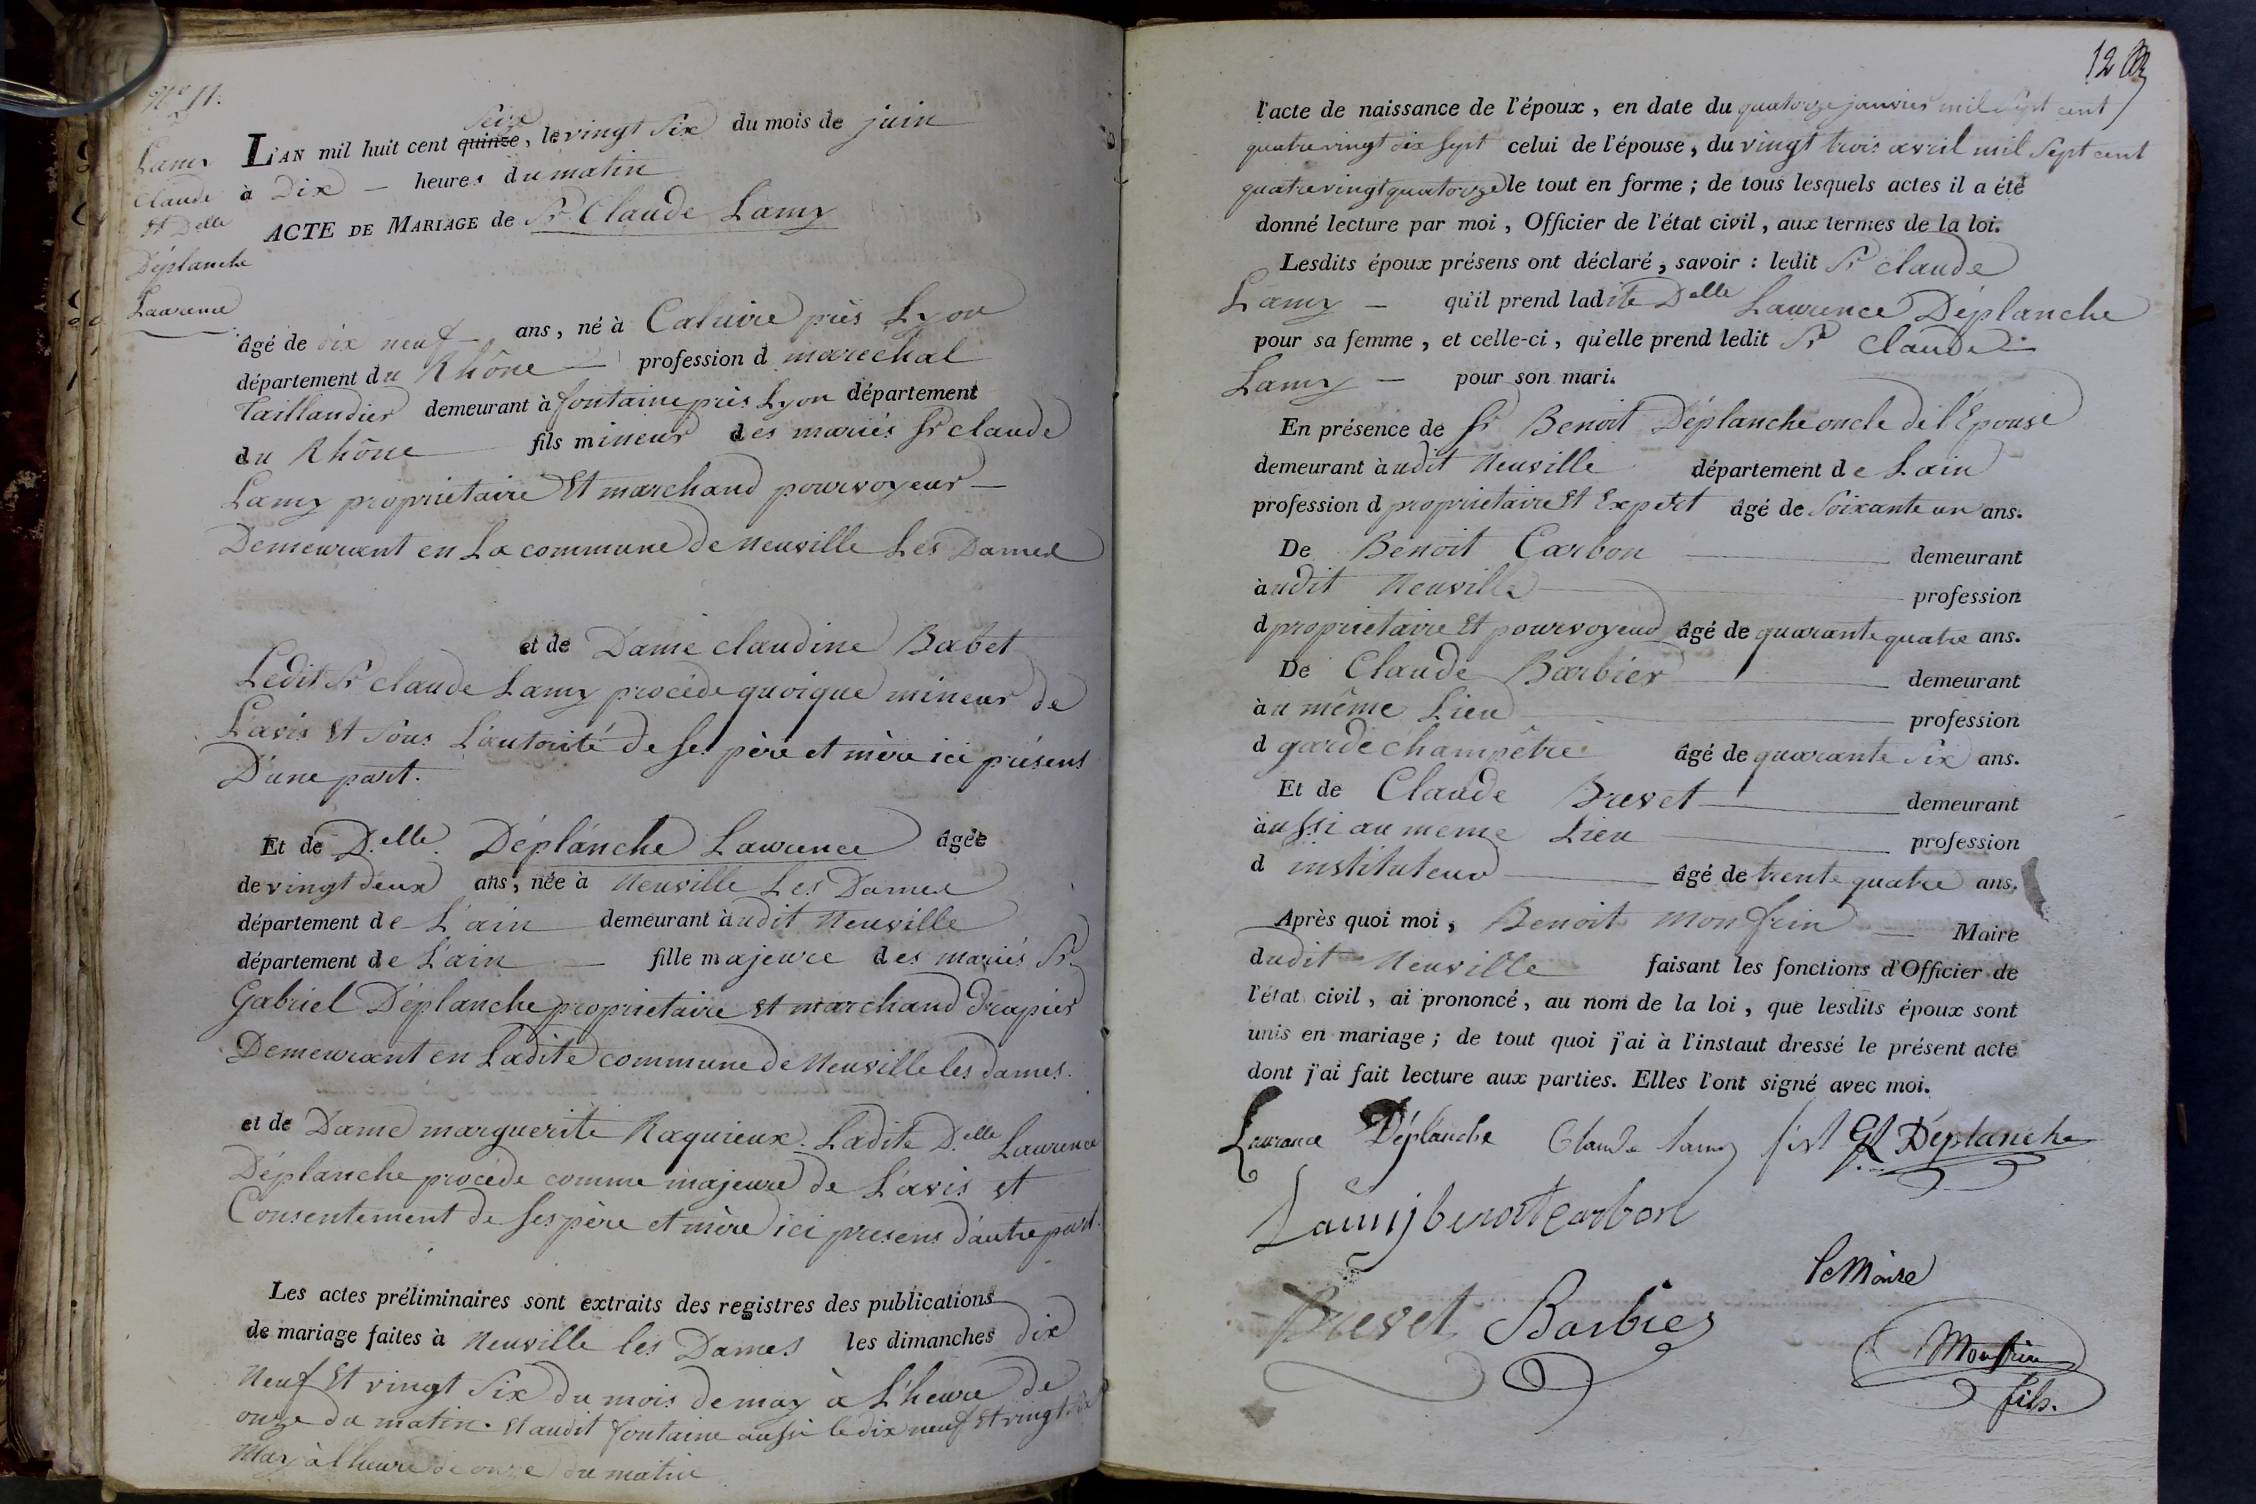 N° 11.
Lamy
Claude
et Delle
Déplanche
Laurence
Seize
L'AN mil huit cent quinze, le vingt Six du mois de juin
à Dix — heures du matin
ACTE DE MARIAGE de Sr Claude Lamy
âgé de dix neuf ans, né à Caluire près Lyon
département du Rhône — profession d marechal
Taillandier demeurant à fontaine près Lyon département
du Rhône fils mineur des mariés Sr claude
Lamy propriétaire Et marchand pourvoyeur —
Demeurant en La commune de Neuville Les Dames
et de Dame claudine Babet
Ledit Sr claude Lamy procède quoique mineur de
L'avis Et Sous L'autorité de Ses père et mère ici présens
D'une part.
Et de D.elle Déplanche Laurence âgée
de vingt deux ans, née à Neuville Les Dames
département de L'ain demeurant àudit Neuville
département de L'ain — fille majeure des mariés Sr
Gabriel Déplanche propriétaire Et marchand Drapier
Demeurant en Ladite commune de Neuville les dames.
et de Dame marguerite Raquieux. Ladite D.elle Laurence
Déplanche procède comme majeure de L'avis et
Consentement de Ses père et mère ici presens d'autre part.
Les actes préliminaires sont extraits des registres des publications
de mariage faites à Neuville les Dames les dimanches dix
Neuf Et vingt Six du mois de may à L'heure de
onze du matin. Et audit fontaine aussi le dix neuf Et vingt Six
May à l'heure de onze du matin
12
l'acte de naissance de l'époux, en date du quatorze janvier mil Sept cent
quatre vingt dix Sept celui de l'épouse, du vingt trois avril mil Sept cent
quatre vingt quatorze le tout en forme; de tous lesquels actes il a été
donné lecture par moi, Officier de l'état civil, aux termes de la loi.
Lesdits époux présens ont déclaré, savoir : ledit Sr claude
Lamy — qu'il prend ladite Delle Laurence Déplanche
pour sa femme, et celle-ci, qu'elle prend ledit Sr Claude
Lamy — pour son mari.
En présence de Sr Benoit Déplanche oncle de l'Epouse
demeurant àudit Neuville département de Lain
profession d propriétaire Et Expert âgé de Soixante un ans.
De Benoit Carbon demeurant
àudit Neuville profession
d propriétaire Et pourvoyeur âgé de quarante quatre ans.
De Claude Barbier demeurant
àu même Lieu profession
d garde champêtre âgé de quarante Six ans.
Et de Claude Brevet demeurant
àussi au meme Lieu profession
d instituteur âgé de trente quatre ans.
Après quoi moi, Benoit Monfrin — Maire
dudit Neuville faisant les fonctions d'Officier de
l'état civil, ai prononcé, au nom de la loi, que lesdits époux sont
unis en mariage; de tout quoi j'ai à l'instaut dressé le présent acte
dont j'ai fait lecture aux parties. Elles l'ont signé avec moi.
Laurance Déplanche Claude Lamy fist Déplanche
Lamy benoit Carbon
le Maire
Brevet Barbier
Monfrin
fils.